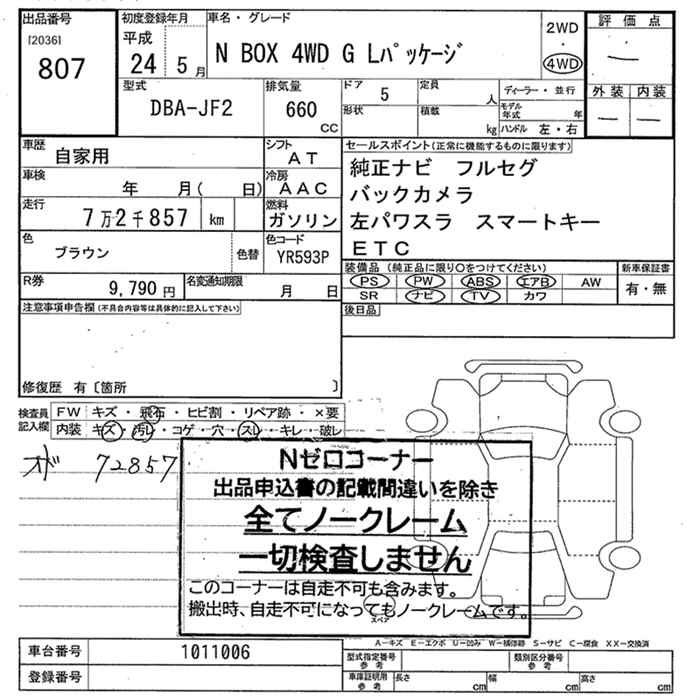 出品番号
[2036]
807
初度登録年月
平成
24 5月
車名・グレード
N BOX 4WD G Lパッケージ
2WD
・
4WD
評価点
―
外装 内装
― ―
型式
DBA-JF2
排気量
660
cc
ドア 5
形状
定員 人
積載 kg
ディーラー・並行
モデル年式 年
ハンドル 左・右
車歴
自家用
シフト
AT
車検
年 月( 日)
冷房
AAC
走行
7万2千857 km
燃料
ガソリン
色
ブラウン
色替
色コード
YR593P
R券
9,790円
名変通知期限
月 日
セールスポイント(正常に機能するものに限ります)
純正ナビ フルセグ
バックカメラ
左パワスラ スマートキー
ETC
装備品(純正品に限り○をつけてください)
PS PW ABS エアB AW
SR ナビ TV カワ
新車保証書
有・無
後日品
注意事項申告欄(不具合内容等は具体的に記入して下さい)
修復歴 有〔箇所 〕
検査員記入欄
FW キズ・飛石・ヒビ割・リペア跡・×要
内装 キズ・汚レ・コゲ・穴・スレ・キレ・破レ
オド 72857
Nゼロコーナー
出品申込書の記載間違いを除き
全てノークレーム
一切検査しません
このコーナーは自走不可も含みます。
搬出時、自走不可になってもノークレームです。
スペア
A―キズ E―エクボ U―凹み W―補修跡 S―サビ C―腐食 XX―交換済
車台番号 1011006
登録番号
型式指定番号 参考
類別区分番号 参考
車庫証明用 参考
長さ cm
幅 cm
高さ cm